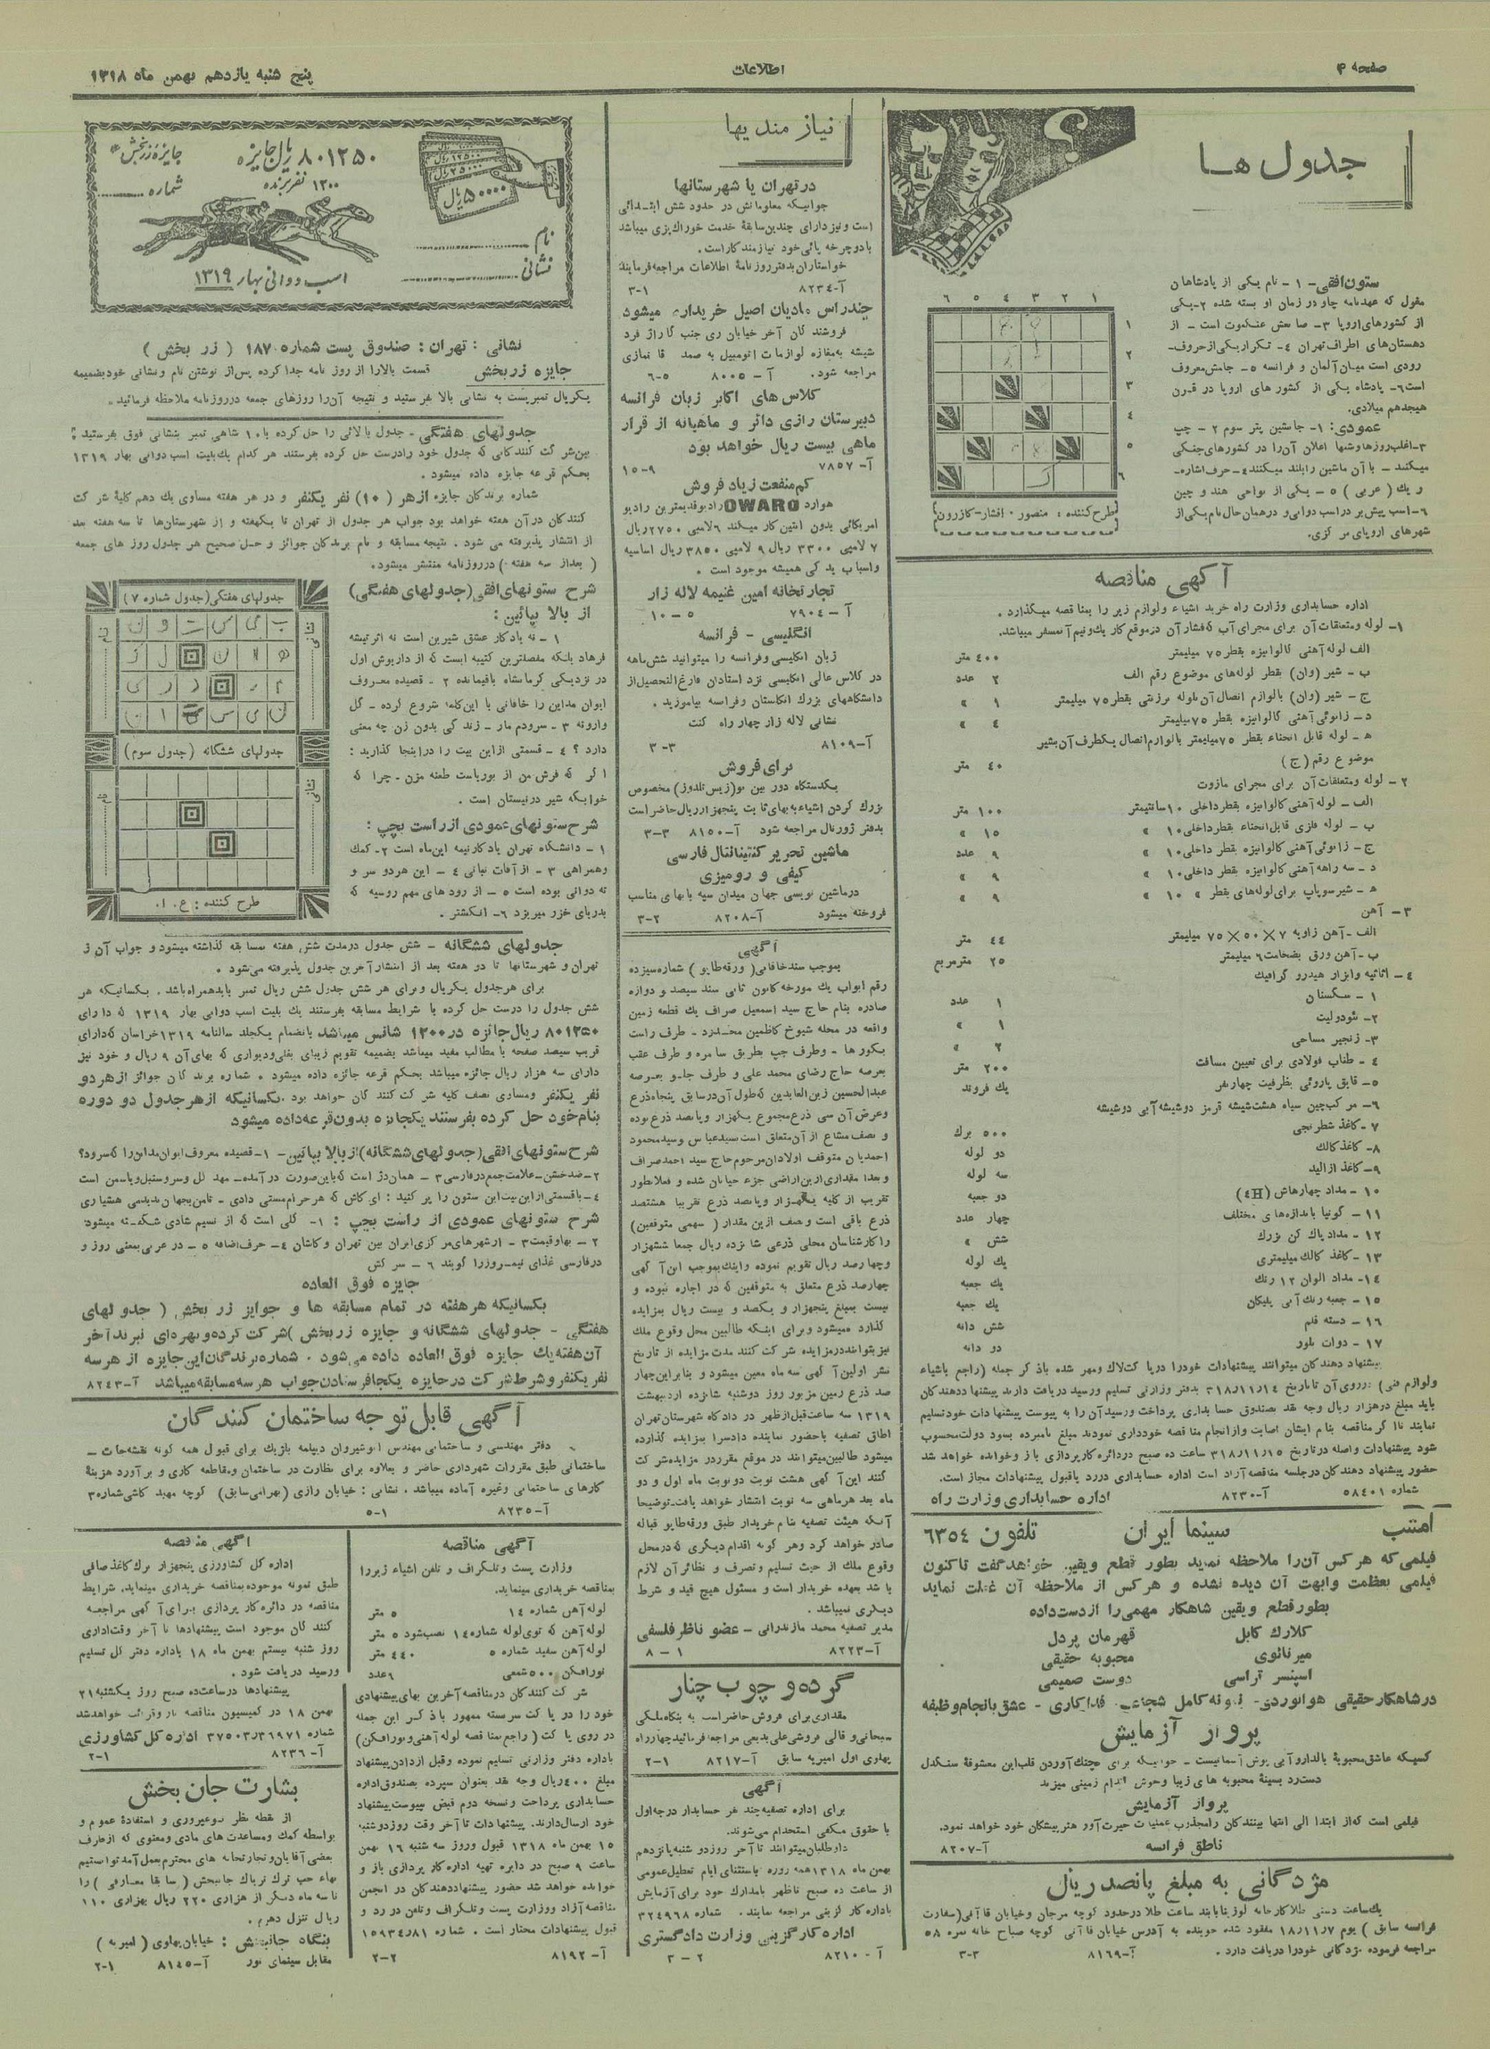 صفحه ۴
اطلاعات
پنج شنبه یازدهم بهمن ماه ۱۳۱۸
جدول ها
ستون افقی- ۱ - نام یکی از پادشاهان
مغول که عهدنامه چاو در زمان او بسته شده ۲-یکی
از کشورهای اروپا ۳- صاحبش عنکبوت است - از
دهستان‌های اطراف تهران ٤- تکرار یکی از حروف-
رودی است میان آلمان و فرانسه ٥- جامش معروف
است ٦- پادشاه یکی از کشور های اروپا در قرن
هیجدهم میلادی.
عمودی: ۱- جانشین پتر سوم ۲ - چپ
۳-اغلب روزها و شبها اعلان آن را در کشورهای جنگی
میکنند - با آن ماشین را بلند میکنند ٤-حرف اشاره-
ریك (عربی) ٥ - یکی از نواحی هند و چین
٦-اسب پیش بر در اسب دوانی و در همان حال نام یکی از
شهرهای اروپای مرکزی.
۱ ۲ ۳ ٤ ٥ ٦
۱
۲
۳
٤
٥
٦
طرح کننده : منصور . افشار-کازرون
آگهی مناقصه
اداره حسابداری وزارت راه خرید اشیاء و لوازم زیر را بمناقصه میگذارد.
۱- لوله و متعلقات آن برای مجرای آب که فشار آن در موقع کار یك و نیم آتمسفر میباشد.
الف لوله آهنی گالوانیزه بقطر ۷٥ میلیمتر ٤۰۰ متر
ب - شیر (وان) بقطر لوله‌های موضوع رقم الف ۲ عدد
ج - شیر (وان) بالوازم اتصال آن بلوله برزنتی بقطر ۷٥ میلیمتر ۱ »
د - زانوئی آهنی گالوانیزه بقطر ۷٥ میلیمتر ٤ »
ه - لوله قابل انحناء بقطر ۷٥ میلیمتر بالوازم اتصال یکطرف آن بشیر
موضوع رقم (ج) ٤۰ متر
۲ - لوله و متعلقات آن برای مجرای مازوت
الف - لوله آهنی گالوانیزه بقطر داخلی ۱۰ سانتیمتر ۱۰۰ متر
ب - لوله فلزی قابل انحناء بقطر داخلی ۱۰ » ۱٥ »
ج - زانوئی آهنی گالوانیزه بقطر داخلی ۱۰ » ۹ عدد
د - سه راهه آهنی گالوانیزه بقطر داخلی ۱۰ » ۹ »
ه - شیر سوپاپ برای لوله‌های بقطر » ۱۰ » ۹ »
۳ - آهن
الف - آهن زاویه ۷×٥۰×۷٥ میلیمتر ٤٤ متر
ب - آهن ورق بضخامت ٦ میلیمتر ۲٥ مترمربع
٤ - اثاثیه و ابزار هیدروگرافیك
۱ - سکستان ۱ عدد
۲- تئودولیت ۱ »
۳- زنجیر مساحی ۲ »
٤ - طناب فولادی برای تعیین مسافت ۲۰۰ متر
٥- قایق پاروئی بظرفیت چهار نفر یك فروند
٦- مرکب چین سیاه هشت شیشه قرمز دو شیشه آبی دو شیشه
۷- کاغذ شطرنجی ٥۰۰ برك
۸- کاغذ کالك دو لوله
۹- کاغذ ازالید سه لوله
۱۰ - مداد چهارهاش (٤H) دو جعبه
۱۱ - گونیا باندازه‌های مختلف چهار عدد
۱۲ - مداد پاك کن بزرك شش »
۱۳ - کاغذ کالك میلیمتری یك لوله
۱٤ - مداد الوان ۱۲ رنك یك جعبه
۱٥ - جعبه رنك آبی پلیکان یك جعبه
۱٦ - دسته قلم شش دانه
۱۷ - دوات بلور دو دانه
پیشنهاد دهندگان میتوانند پیشنهادات خود را در پاکت لاك و مهر شده با ذکر جمله (راجع باشیاء
و لوازم فنی) بر روی آن تا تاریخ ۳۱۸/۱۱/۱٤ بدفتر وزارتی تسلیم و رسید دریافت دارند پیشنهاد دهندگان
باید مبلغ دوهزار ریال وجه نقد بصندوق حسابداری پرداخت و رسید آن را به پیوست پیشنهادات خود تسلیم
نمایند تا اگر مناقصه بنام ایشان اصابت و از انجام مناقصه خودداری نمودند مبلغ نامبرده بسود دولت محسوب
شود پیشنهادات واصله در تاریخ ۳۱۸/۱۱/۱٥ ساعت ده صبح در دائره کارپردازی باز و خوانده خواهد شد
حضور پیشنهاد دهندگان در جلسه مناقصه آزاد است اداره حسابداری در رد یا قبول پیشنهادات مجاز است.
شماره ٥۸٤۰۱ آ-۸۲۳۰ اداره حسابداری وزارت راه
امشب سینما ایران تلفون ٦۳٥٤
فیلمی که هر کس آن را ملاحظه نماید بطور قطع و یقین خواهد گفت تاکنون
فیلمی بعظمت و ابهت آن دیده نشده و هر کس از ملاحظه آن غفلت نماید
بطور قطع و یقین شاهکار مهمی را از دست داده
کلارك گابل قهرمان پردل
میرنالوی محبوبه حقیقی
اسپنسر تراسی دوست صمیمی
در شاهکار حقیقی هوانوردی- نمونه کامل شجاعت فداکاری - عشق بانجام وظیفه
پرواز آزمایش
پرواز آزمایش
فیلمی است که از ابتدا الی انتها بینندگان را مجذوب عملیات حیرت آور هنرپیشگان خود خواهد نمود.
ناطق فرانسه آ-۸۲۰۷
مژدگانی به مبلغ پانصد ریال
یك ساعت دستی طلا کار خانه لوژین با بند ساعت طلا در حدود کوچه مرجان و خیابان قا آنی (سفارت
فرانسه سابق) یوم ۱۸/۱۱/۷ مفقود شده جوینده به آدرس خیابان قا آنی کوچه صباح خانه نمره ٥۸
مراجعه فرموده مژدگانی خود را دریافت دارد. آ-۸۱٦۹ ۳-۳
نیازمندیها
در تهران یا شهرستانها
جوانیکه معلوماتش در حدود شش ابتدائی
است و نیز دارای چندین سابقۀ خدمت خوراك پزی میباشد
با دوچرخه پائی خود نیازمند کار است.
خواستاران بدفتر روزنامۀ اطلاعات مراجعه فرمایند
آ-۸۲۳٤ ۳-۱
چند راس مادیان اصیل خریداری میشود
فروشندگان آخر خیابان ری جنب گاراژ فرد
شیشه به مغازه لوازمات اتومبیل به صمد قانمازی
مراجعه شود. آ- ۸۰۰٥ ٦-٥
کلاس های اکابر زبان فرانسه
دبیرستان رازی دائر و ماهیانه از قرار
ماهی بیست ریال خواهد بود
آ- ۷۸٥۷ ۱٥-۹
کم منفعت زیاد فروش
OWARO
امریکائی بدون آنتن کار میکند ٦ لامپی ۲۷٥۰ ریال
۷ لامپی ۳۳۰۰ ریال ۹ لامپی ۳۸٥۰ ریال اساسیه
و اسباب یدکی همیشه موجود است .
تجارتخانه امین غنیمه لاله زار
آ - ۷۹۰٤ ٥ - ۱۰
انگلیسی - فرانسه
زبان انگلیسی و فرانسه را میتوانید شش ماهه
در کلاس عالی انگلیسی نزد استادان فارغ التحصیل از
دانشگاههای بزرك انگلستان و فرانسه بیاموزید .
نشانی لاله زار چهار راه کنت
آ-۸۱۰۹ ۳-۳
برای فروش
یکدستگاه دوربین نو(زیس تلدوز) مخصوص
بزرك کردن اشیاء به بهای ثابت پنجهزار ریال حاضر است
بدفتر ژورنال مراجعه شود آ-۸۱٥۰ ۳-۳
ماشین تحریر کنتیناتال فارسی
کیفی و رومیزی
در ماشین نویسی جهان میدان سپه با بهای مناسب
فروخته میشود آ-۸۲۰۸ ۳-۲
آگهی
بموجب سند خاقانی (ورقه طاپو) شماره سیزده
صادره بنام حاج سید اسمعیل صراف یك قطعه زمین
واقعه در محله شیوخ کاظمین محدود - طرف راست
بگورها - و طرف چپ بطریق سامره و طرف عقب
بعرصه حاج رضای محمد علی و طرف جلو بعرصه
عبدالحسین زین العابدین که طول آن در سابق پنجاه ذرع
و عرض آن سی ذرع مجموع یکهزار و پانصد ذرع بوده
و نصف مشاع از آن متعلق است بسید عباس و سید محمود
احمدیان متوقف اولادان مرحوم حاج سید احمد صراف
و بعدا مقداری از این اراضی جزء خیابان شده و فعلا بطور
تقریب از کلیه یکهزار و پانصد ذرع تقریبا هشتصد
ذرع باقی است و نصف از این مقدار (سهمی متوقفین)
را کارشناسان محلی ذرعی شانزده ریال جمعا ششهزار
و چهارصد ریال تقویم نموده و اینك بموجب این آگهی
چهارصد ذرع متعلق به متوقفین که در اجاره نبوده و
نیست بمبلغ پنجهزار و یکصد و بیست ریال بمزایده
گذارده میشود و برای اینکه طالبین محل وقوع ملك
نیز بتوانند در مزایده شرکت کنند مدت مزایده از تاریخ
نشر اولین آگهی سه ماه معین میشود و بنابر این چهار
صد ذرع زمین مزبور روز دوشنبه شانزده اردیبهشت
۱۳۱۹ سه ساعت قبل از ظهر در دادگاه شهرستان تهران
اطاق تصفیه با حضور نماینده دادسرا بمزایده گذارده
میشود طالبین میتوانند در موقع مقرر در مزایده شرکت
کنند این آگهی هشت نوبت دو نوبت ماه اول و دو
ماه بعد هر ماهی سه نوبت انتشار خواهد یافت-توضیحا
آنکه هیئت تصفیه بنام خریدار طبق ورقه طاپو قباله
صادر خواهد کرد و هر گونه اقدام دیگری که در محل
وقوع ملك از حیث تسلیم و تصرف و نظائر آن لازم
باشد بعهده خریدار است و مسئول هیچ قید و شرط
دیگری نمیباشد .
مدیر تصفیه محمد مازندرانی - عضو ناظر فلسفی
آ-۸۲۲۳ ۸ - ۱
گرده و چوب چنار
مقداری برای فروش حاضر است به بنگاه ملکی
سبحانی و قالی فروشی علی بدیعی مراجعه فرمائید چهارراه
پهلوی اول امیریه سابق آ-۸۲۱۷ ۲-۱
آگهی
برای اداره تصفیه چند نفر حسابدار درجه اول
با حقوق مکفی استخدام می‌شوند.
داوطلبان میتوانند تا آخر روز دوشنبه پانزدهم
بهمن ماه ۱۳۱۸ همه روزه باستثنای ایام تعطیل عمومی
از ساعت ده صبح تا ظهر با مدارك خود برای آزمایش
باداره کارگزینی مراجعه نمایند. شماره ۳۲٤۹٦۸
اداره کارگزینی وزارت دادگستری
آ- ۸۲۱۰ ۳ - ۲
جایزه زربخش
شماره
۸۰۱۲٥۰ ریال جایزه
۱۳۰۰ نفر برنده
٥۰۰۰۰ ریال
نام
نشانی
اسب دوانی بهار ۱۳۱۹
نشانی : تهران : صندوق پست شماره ۱۸۷ (زر بخش)
جایزه زربخش قسمت بالا را از روزنامه جدا کرده پس از نوشتن نام و نشانی خود بضمیمه
یکریال تمبر پست به نشانی بالا بفرستید و نتیجه آن را روزهای جمعه در روزنامه ملاحظه فرمائید.
جدولهای هفتگی - جدول بالائی را حل کرده با ۱۰ شاهی تمبر بنشانی فوق بفرستید :
بین شرکت کنندگانی که جدول خود را درست حل کرده بفرستند هر کدام یك بلیت اسب دوانی بهار ۱۳۱۹
بحکم قرعه جایزه داده میشود.
شماره برندگان جایزه از هر (۱۰) نفر یکنفر و در هر هفته مساوی یك دهم کلیۀ شرکت
کنندگان در آن هفته خواهد بود جواب هر جدول از تهران تا یکهفته و از شهرستان‌ها تا سه هفته بعد
از انتشار پذیرفته می شود . نتیجه مسابقه و نام برندگان جوائز و حل صحیح هر جدول روز های جمعه
(بعد از سه هفته) در روزنامه منتشر میشود.
جدولهای هفتگی (جدول شماره ۷)
نام
نشانی
ب ی س ت و ن
جدولهای ششگانه (جدول سوم)
نام
نشانی
طرح کننده : ع . ا .
شرح ستونهای افقی (جدولهای هفتگی)
از بالا بپائین :
۱ - نه یادگار عشق شیرین است نه اثر تیشه
فرهاد بلکه مفصلترین کتیبه ایست که از داریوش اول
در نزدیکی کرمانشاه باقیمانده ۲ - قصیده معروف
ایوان مداین را خاقانی با این کلمه شروع کرده - گل
وارونه ۳ - سرودم مار - زندگی بدون زن چه معنی
دارد ؟ ٤ - قسمتی از این بیت را در اینجا گذارید :
اگر که فرش من از بوریاست طعنه مزن - چرا که
خوابگه شیر در نیستان است .
شرح ستونهای عمودی از راست بچپ :
۱ - دانشگاه تهران یادگار نیمه این ماه است ۲- کمك
و همراهی ۳ - از آفات نباتی ٤ - این هر دو سر و
ته دوائی بوده است ٥ - از رودهای مهم روسیه که
بدریای خزر میریزد ٦ - انگشتر .
جدولهای ششگانه - شش جدول در مدت شش هفته بمسابقه گذاشته میشود و جواب آن از
تهران و شهرستانها تا دو هفته بعد از انتشار آخرین جدول پذیرفته می‌شود .
برای هر جدول یکریال و برای هر شش جدول شش ریال تمبر باید همراه باشد . بکسانیکه هر
شش جدول را درست حل کرده با شرایط مسابقه بفرستند یك بلیت اسب دوانی بهار ۱۳۱۹ که دارای
۸۰۱۲٥۰ ریال جائزه در ۱۳۰۰ شانس میباشد بانضمام یکجلد سالنامه ۱۳۱۹ خراسان که دارای
قریب سیصد صفحه با مطالب مفید میباشد بضمیمه تقویم زیبای بغلی و دیواری که بهای آن ۹ ریال و خود نیز
دارای سه هزار ریال جائزه میباشد بحکم قرعه جائزه داده میشود . شماره برندگان جوائز از هر دو
نفر یکنفر و مساوی نصف کلیه شرکت کنندگان خواهد بود . بکسانیکه از هر جدول دو دوره
بنام خود حل کرده بفرستند یکجایزه بدون قرعه داده میشود
شرح ستونهای افقی (جدولهای ششگانه) از بالا بپائین- ۱-قصیده معروف ایوان مداین را که سرود؟
۲-ضد خشن-علامت جمع در فارسی ۳ - همان دژ است که باین صورت در آمده- مهد گل و سروستبل و یاسمن است
٤- با قسمتی از این بیت این ستون را پر کنید : ای کاش که هر حرام مستی دادی - تا من بجهان ندیدمی هشیاری
شرح ستونهای عمودی از راست بچپ : ۱- گلی است که از نسیم شادی شکفته میشود
۲ - بها و قیمت ۳ - از شهرهای مرکزی ایران بین تهران و کاشان ٤- حرف اضافه ٥ - در عربی بمعنی روز و
در فارسی غذای نیم-روز را گویند ٦ - سرکش
جایزه فوق العاده
بکسانیکه هر هفته در تمام مسابقه ها و جوایز زر بخش (جدولهای
هفتگی - جدولهای ششگانه و جایزه زربخش) شرکت کرده و بهره‌ای نبرند آخر
آن هفته یك جایزه فوق العاده داده می‌شود . شماره برندگان این جایزه از هر سه
نفر یکنفر و شرط شرکت در جایزه یکجا فرستادن جواب هر سه مسابقه میباشد آ-۸۲٤۳
آگهی قابل توجه ساختمان کنندگان
دفتر مهندسی و ساختمانی مهندس انوشیروان دیپلمه بلژیك برای قبول همه گونه نقشه‌جات -
ساختمانی طبق مقررات شهرداری حاضر و بعلاوه برای نظارت در ساختمان و مقاطعه کاری و برآورد هزینۀ
کارهای ساختمانی و غیره آماده میباشد . نشانی : خیابان رازی (بهرامی سابق) کوچه مهبد کاشی شماره ۳
آ-۸۲۳٥ ٥-۱
آگهی مناقصه
وزارت پست و تلگراف و تلفن اشیاء زیر را
بمناقصه خریداری مینماید.
لوله آهن شماره ۱٤ ٥ متر
لوله آهن که توی لوله شماره ۱٤ نصب شود ٥ متر
لوله آهن سفید شماره ٥ ٤٤۰ متر
نورافکن ٥۰۰ شمعی ٦ عدد
شرکت کنندگان در مناقصه آخرین بهای پیشنهادی
خود را در پاکت سربسته ممهور با ذکر این جمله
در روی پاکت (راجع بمناقصه لوله آهنی و نورافکن)
باداره دفتر وزارتی تسلیم نموده و قبل از دادن پیشنهاد
مبلغ ٤۰۰ ریال وجه نقد بعنوان سپرده بصندوق اداره
حسابداری پرداخت و نسخه دوم قبض بپیوست پیشنهاد
خود ارسال دارند. پیشنهادات تا آخر وقت روز دوشنبه
۱٥ بهمن ماه ۱۳۱۸ قبول و روز سه شنبه ۱٦ بهمن
ساعت ۹ صبح در دایره تهیه اداره کارپردازی باز و
خوانده خواهد شد حضور پیشنهاد دهندگان در انجمن
مناقصه آزاد و وزارت پست و تلگراف و تلفن در رد و
قبول پیشنهادات مختار است . شماره ۱٥۹۳٤/۸۱
آ-۸۱۹۲ ۲-۲
آگهی مناقصه
اداره کل کشاورزی پنجهزار برك کاغذ صافی
طبق نمونه موجوده بمناقصه خریداری مینماید. شرایط
مناقصه در دائره کارپردازی برای آگهی مراجعه
کنندگان موجود است پیشنهادها تا آخر وقت اداری
روز شنبه بیستم بهمن ماه ۱۸ باداره دفتر کل تسلیم
و رسید دریافت شود .
پیشنهادها در ساعت ده صبح روز یکشنبه ۲۱
بهمن ۱۸ در کمیسیون مناقصه باز و قرائت خواهد شد
شماره ۳۷٥۰۳/۳٦۹۷۱ اداره کل کشاورزی
آ- ۸۲۳٦ ۲-۱
بشارت جان بخش
از نقطه نظر نوعپروری و استفادۀ عموم و
بواسطه کمك و مساعدت های مادی و معنوی که از طرف
بعضی آقایان و تجارتخانه های محترم بعمل آمد توانستیم
بهاء حب ترك تریاك جانبخش (سابقا معارفی) را
تا سه ماه دیگر از هزاری ۲۲۰ ریال بهزاری ۱۱۰
ریال تنزل دهیم.
بنگاه جانبخش : خیابان پهلوی (امیریه)
مقابل سینمای نور آ-۸۱٤٥ ۲-۱